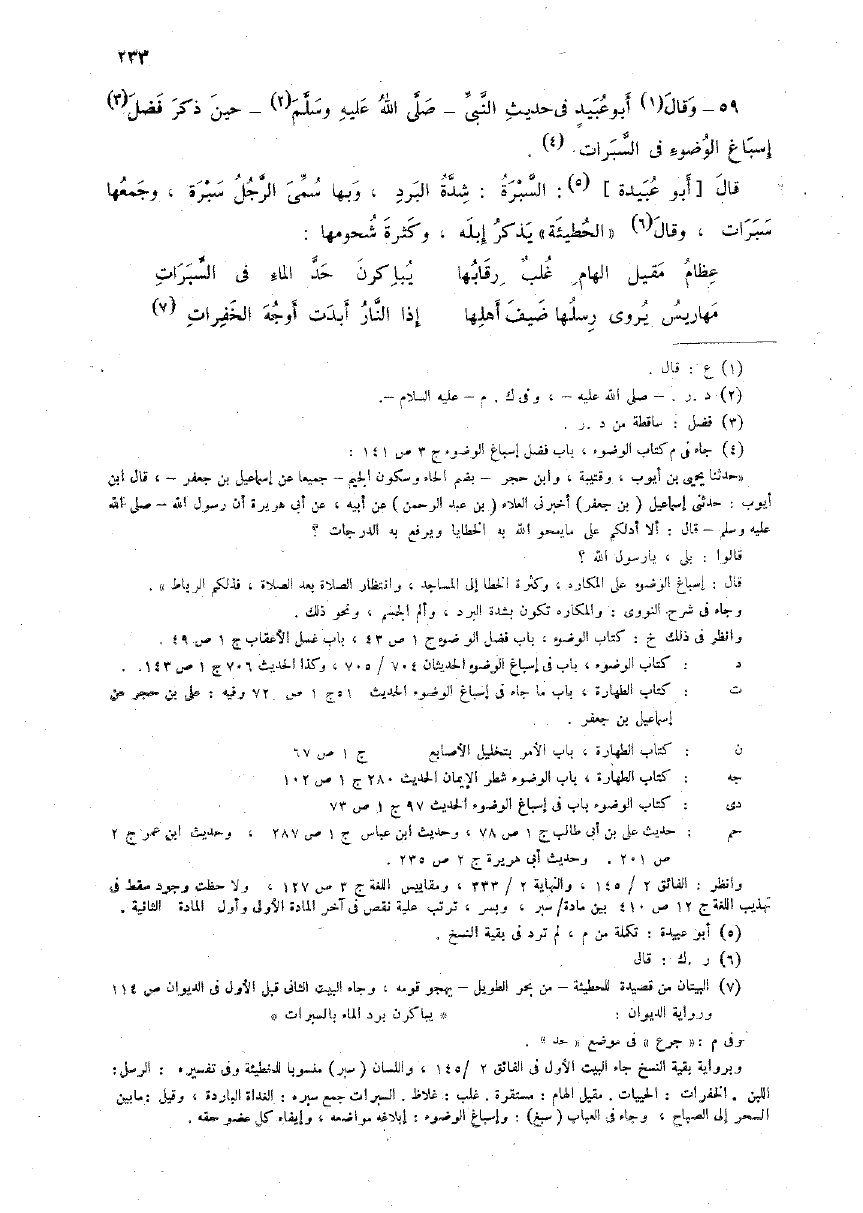 ٢٣٣
٥٩ – وَقالَ(١) أَبو عُبَيدٍ فى حديثِ النَّبىِّ – صَلَّى اللهُ عَليهِ وسَلَّمَ(٢) – حينَ ذكرَ فَضلَ(٣)
إسبَاغِ الوُضوءِ فى السَّبَرات (٤) .
قالَ [ أَبو عُبَيدة ] (٥) : السَّبْرَةُ : شِدَّةُ البَردِ ، وَبها سُمِّىَ الرَّجُلُ سَبْرَة ، وجَمعُها
سَبَرَات ، وقالَ(٦) «الحُطيئَة» يَذكرُ إبلَه ، وكَثرةَ شُحومها :
عِظامُ مَقيلِ الهامِ غُلبٌ رِقَابُها يُباكِرنَ حَدَّ الماءِ فى السَّبَرَاتِ
مَهاريسُ يُروى رِسلُها ضَيفَ أَهلِها إذا النَّارُ أَبدَت أَوجُهَ الخَفِراتِ (٧)
(١) ع : قال .
(٢) د . ر . – صلى الله عليه – ، وفى ك . م – عليه السلام –.
(٣) فضل : ساقطة من د . ر .
(٤) جاء فى م كتاب الوضوء ، باب فضل إسباغ الوضوء ج ٣ ص ١٤١ :
«حدثنا يحيى بن أيوب ، وقتيبة ، وابن حجر – بضم الحاء وسكون الجيم – جميعا عن إسماعيل بن جعفر – ، قال ابن
أيوب : حدثنى إسماعيل ( بن جعفر ) أخبرنى العلاء ( بن عبد الرحمن ) عن أبيه ، عن أبى هريرة أن رسول الله – صلى الله
عليه وسلم – قال : ألا أدلكم على مايمحو الله به الخطايا ويرفع به الدرجات ؟
قالوا : بلى ، يارسول الله ؟
قال : إسباغ الوضوء على المكاره ، وكثرة الخطا إلى المساجد ، وانتظار الصلاة بعد الصلاة ، فذلكم الرباط » .
وجاء فى شرح النووى : والمكاره تكون بشدة البرد ، وألم الجسم ، ونحو ذلك .
وانظر فى ذلك خ : كتاب الوضوء ، باب فضل الوضوء ج ١ ص ٤٣ ، باب غسل الأعقاب ج ١ ص ٤٩ .
د : كتاب الوضوء ، باب فى إسباغ الوضوء الحديثان ٧٠٤ / ٧٠٥ ، وكذا الحديث ٧٠٦ ج ١ ص ١٤٣ .
ت : كتاب الطهارة ، باب ما جاء فى إسباغ الوضوء الحديث ٥١ ج ١ ص ٧٢ وفيه : على بن حجر عن
إسماعيل بن جعفر .
ن : كتاب الطهارة ، باب الأمر بتخليل الأصابع ج ١ ص ٦٧
جه : كتاب الطهارة ، باب الوضوء شطر الإيمان الحديث ٢٨٠ ج ١ ص ١٠٢
دى : كتاب الوضوء باب فى إسباغ الوضوء الحديث ٩٧ ج ١ ص ٧٣
حم : حديث على بن أبى طالب ج ١ ص ٧٨ ، وحديث ابن عباس ج ١ ص ٢٨٧ ، وحديث ابن عمر ج ٢
ص ٢٠١ . وحديث أبى هريرة ج ٢ ص ٢٣٥ .
وانظر : الفائق ٢ / ١٤٥ ، والنهاية ٢ / ٣٣٣ ، ومقاييس اللغة ج ٣ ص ١٢٧ ، ولاحظت وجود سقط فى
تهذيب اللغة ج ١٢ ص ٤١٠ بين مادة/ سبر ، وبسر ، ترتب علية نقص فى آخر المادة الأولى وأول المادة الثانية .
(٥) أبو عبيدة : تكملة من م ، لم ترد فى بقية النسخ .
(٦) ر . ك : قال
(٧) البيتان من قصيدة للحطيئة – من بحر الطويل – يهجو قومه ، وجاء البيت الثانى قبل الأول فى الديوان ص ١١٤
ورواية الديوان : * يباكرن برد الماء بالسبرات *
وفى م : « جرع » فى موضع « حد » .
وبرواية بقية النسخ جاء البيت الأول فى الفائق ٢ / ١٤٥ ، واللسان ( سبر ) منسوبا للحطيئة وفى تفسيره : الرسل :
اللبن . الخفرات : الحييات . مقيل الهام : مستقرة . غلب : غلاظ . السبرات جمع سبره : الغداة الباردة ، وقيل : مابين
السحر إلى الصباح ، وجاء فى العباب ( سبغ ) : وإسباغ الوضوء : إبلاغه مواضعه ، وإيفاء كل عضو حقه .